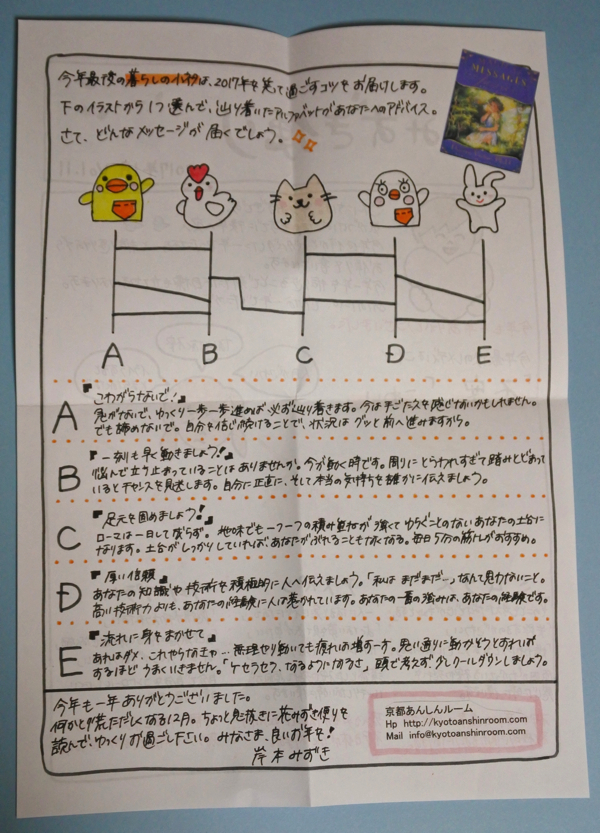 今年最後の暮らしの小秒は、2017年を笑って過ごすコツをお届けします。
下のイラストから1つ選んで、辿り着いたアルファベットがあなたへのアドバイス。
さて、どんなメッセージが届くでしょう。
MESSAGES
A B C D E
『こわがらないで!』
A
急がないで、ゆっくり一歩一歩進めば必ず辿り着きます。今は手ごたえを感じないかもしれません。
でも諦めないで。自分を信じ続けることで、状況はグッと前へ進みますから。
『一刻も早く動きましょう!』
B
悩んで立ち止まっていることはありませんか。今が動く時です。周りにとらわれすぎて踏みとどまって
いるとチャンスを見逃します。自分に正直に、そして本当の気持ちを誰かに伝えましょう。
『足元を固めましょう!』
C
ローマは一日して成らず。地味でも一つ一つの積み重ねが強くてゆらぐことのないあなたの土台に
なります。土台がしっかりしていればあなたがぶれることもなくなる。毎日5分の筋トレがおすすめ。
『厚い信頼』
D
あなたの知識や技術を積極的に人へ伝えましょう。「私はまだまだ…」なんて思わないこと。
高い技術力よりも、あなたの経験に人は惹かれています。あなたの一番の強みは、あなたの経験です。
『流れに身をまかせて』
E
あれはダメ、これやらなきゃ…無理やり動いても疲れは増す一方。思い通りに動かそうとすれば
するほどうまくいきません。「ケセラセラ、なるようになるさ」頭で考えずクールダウンしましょう。
今年も一年ありがとうございました。
何かと慌ただしくなる12月。ちょっと息抜きに花みずき便りを
読んで、ゆっくりお過ごし下さい。みなさま、良いお年を!
岸本みずき
京都あんしんルーム
Hp http://kyotoanshinroom.com
Mail info@kyotoanshinroom.com